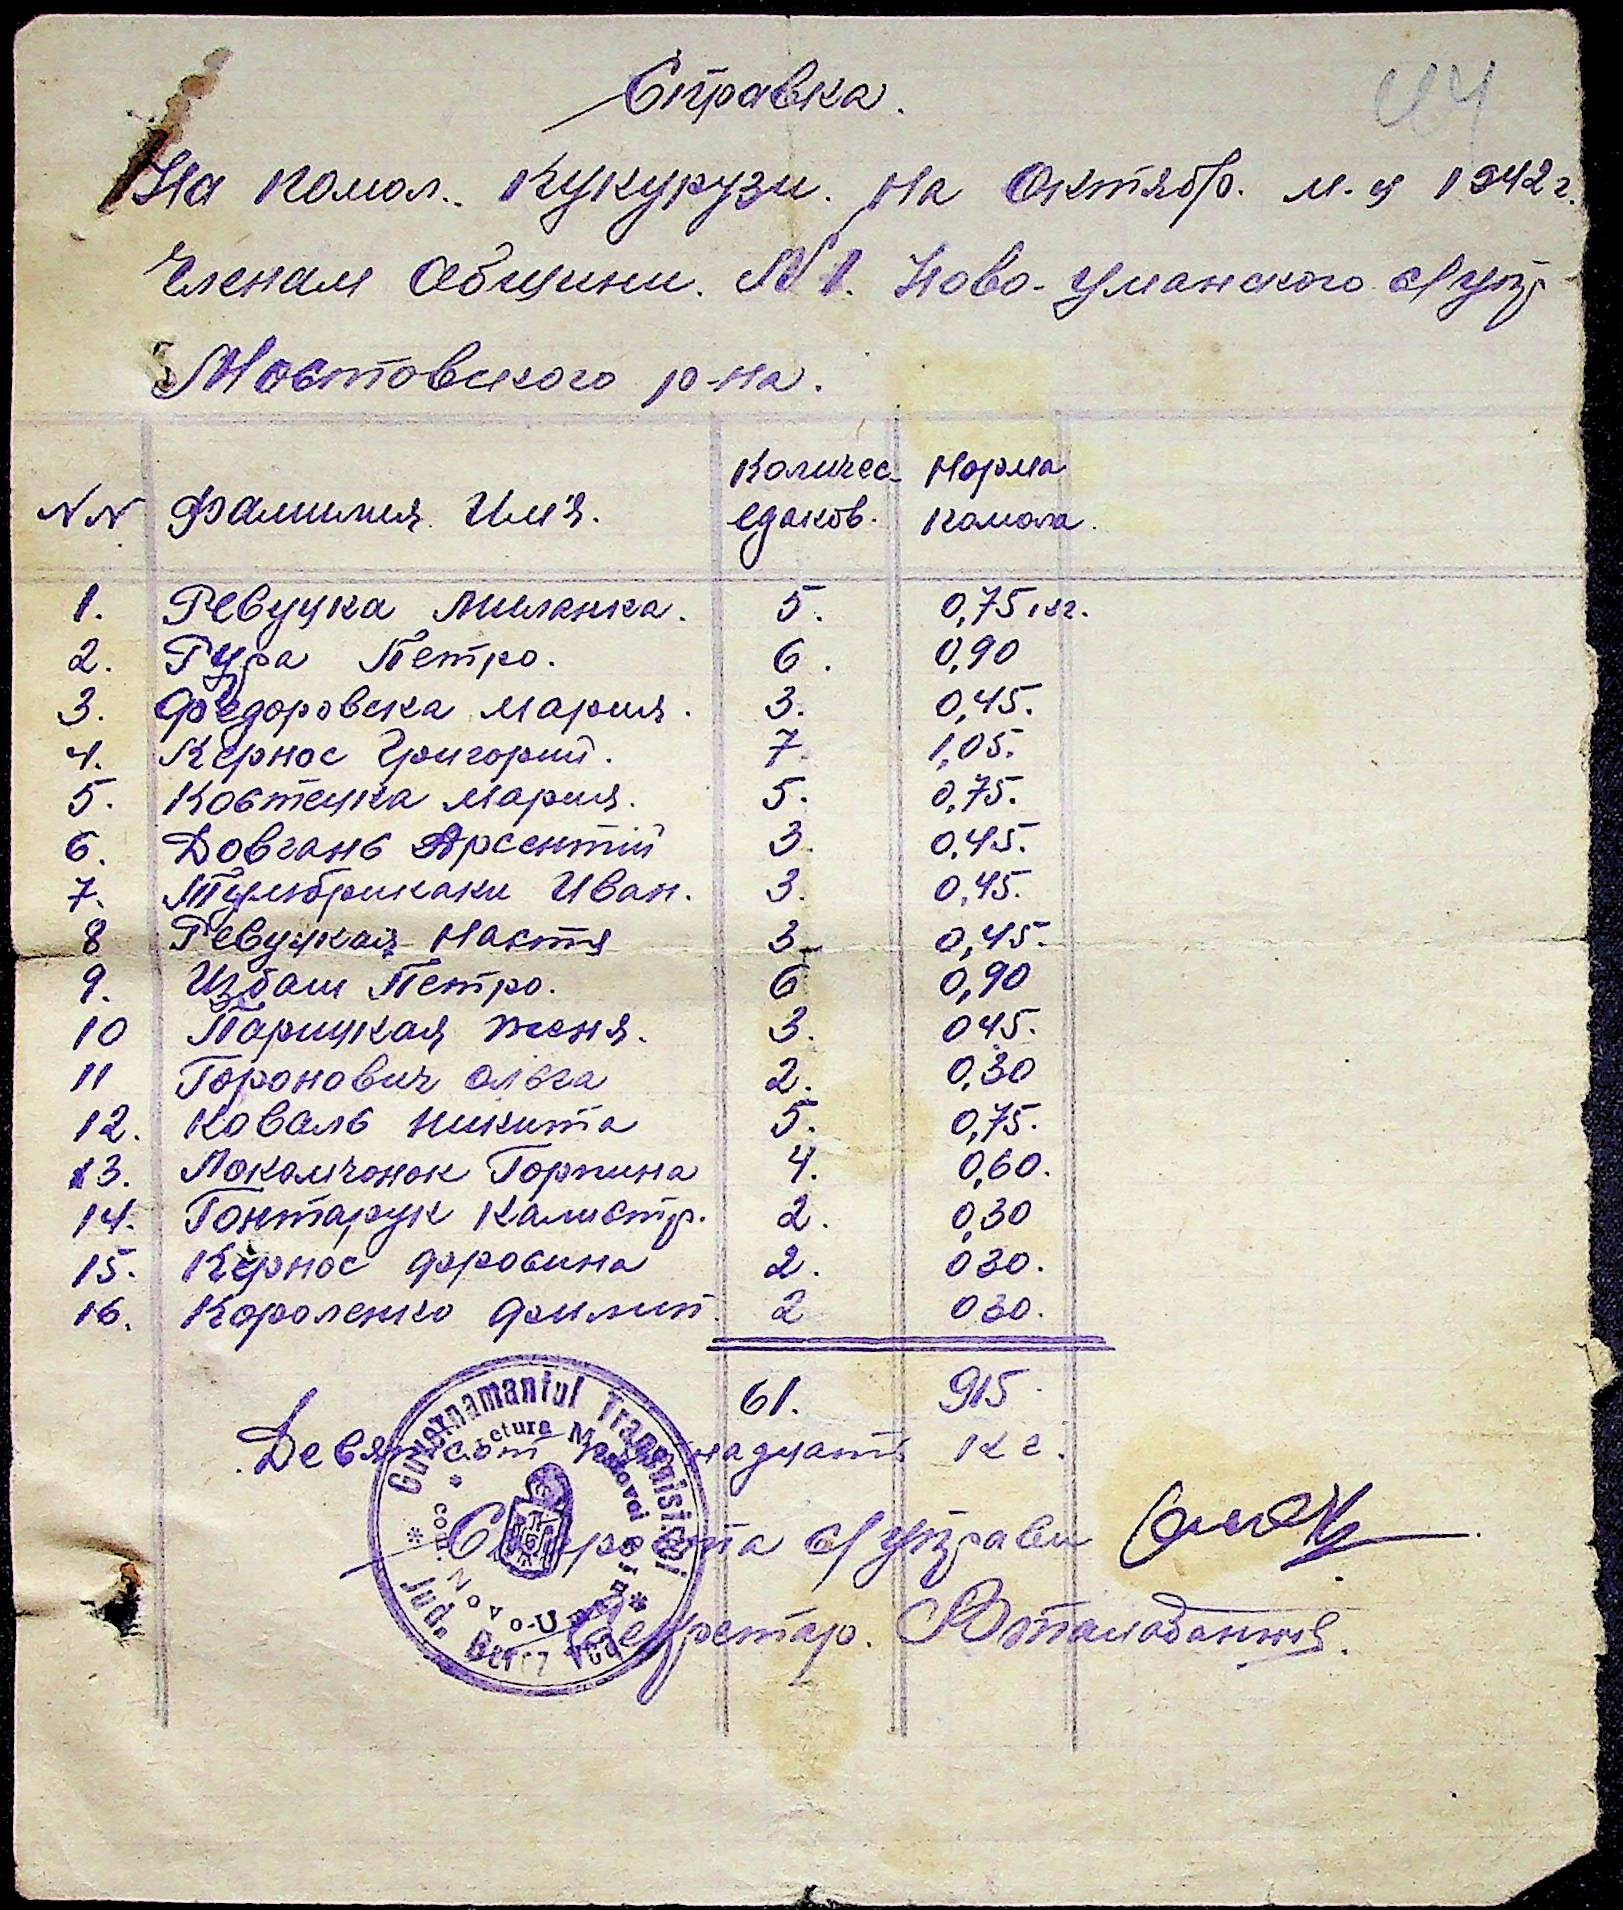 Справка.
44
На помол. Кукурузи. На Октябр. м-ц 1942 г.
Членам Общини. №1. Ново-Уманского с/упр
Мостовского р-на.
NN Фамилия Им'я. Количес- едаков. Норма помола.
1. Ревуцка Миланка. 5. 0,75 кг.
2. Гура Петро. 6. 0,90
3. Федоровска Мария. 3. 0,45.
4. Кернос Григорий. 7. 1,05.
5. Костецка Мария. 5. 0,75.
6. Довгань Арсентий 3. 0,45.
7. Тумбрикаки Иван. 3. 0,45.
8 Ревуцкая Настя 3 0,45.
9. Избаш Петро. 6 0,90
10 Парицкая Женя. 3. 045.
11 Горонович Ольга 2. 0,30
12. Коваль Никита 5. 0,75.
13. Локамчонок Горпина 4. 0,60.
14. Гонтарук Калистр. 2. 0,30
15. Кернос Фросина 2. 030.
16. Короленко Филип. 2 030.
61. 915
Девятсот пятнадцать кг.
Староста с/управи
Секретар.
Guvernamantul Transnistriei
Jud. Berezovca
com. Novo-Uman